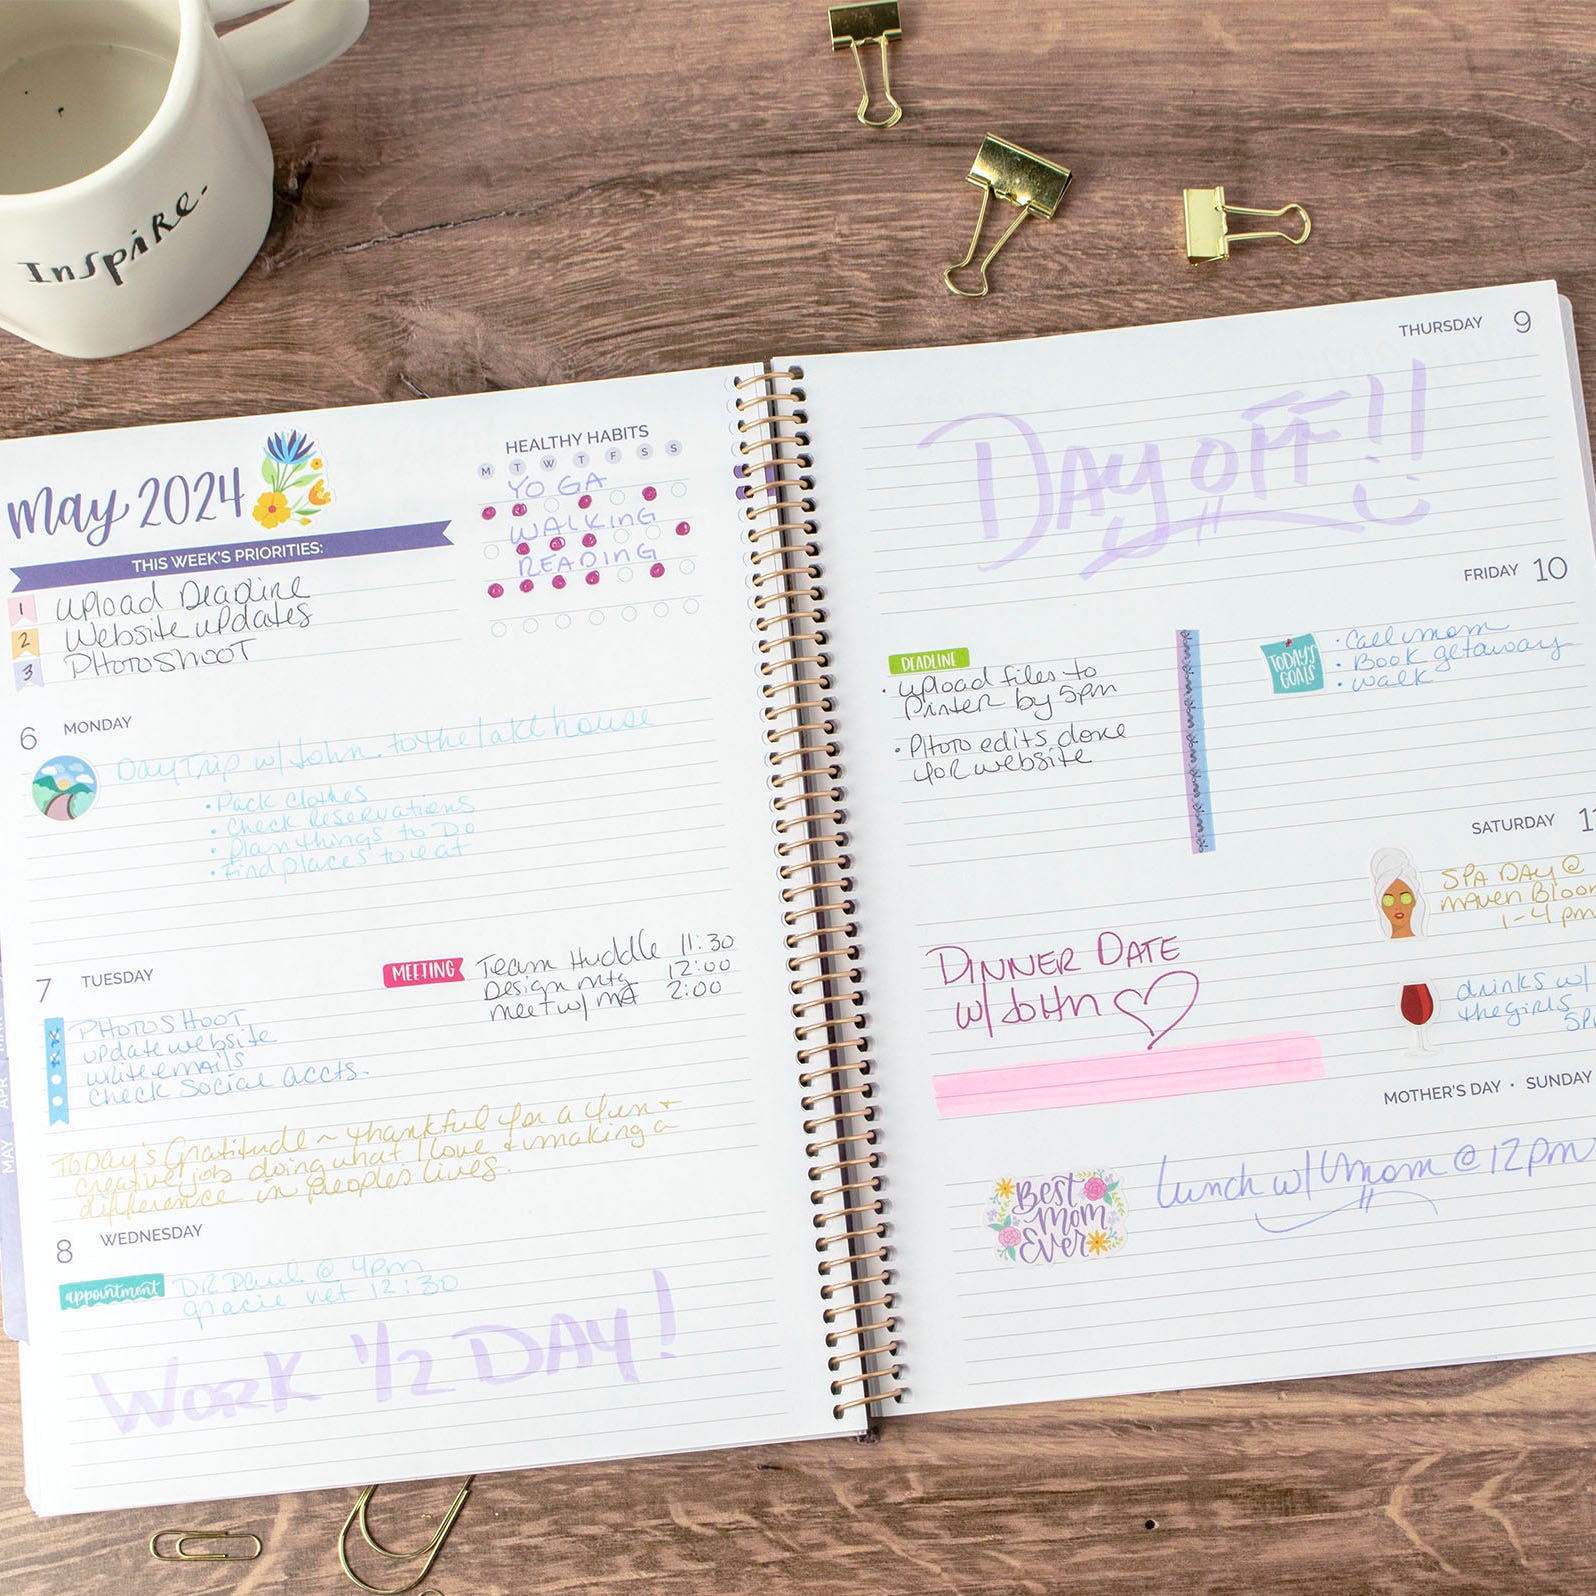 Inspire.
May 2024
THIS WEEK'S PRIORITIES:
1 Upload Deadline
2 Website updates
3 PHOTOSHOOT
HEALTHY HABITS
M T W T F S S
YOGA
WALKING
READING
6 MONDAY
Day Trip w/ John to the lake house
• Pack clothes
• Check Reservations
• Plan things to Do
• Find places to eat
7 TUESDAY
MEETING Team Huddle 11:30
Design mtg 12:00
meet w/ 2:00
PHOTOSHOOT
update website
write emails
check social accts.
Today's Gratitude ~ thankful for a fun +
creative job doing what I love + making a
difference in people's lives.
8 WEDNESDAY
appointment DR @ 4pm
gracie vet 12:30
WORK 1/2 DAY!
MAY
APR
THURSDAY 9
DAY OFF!!
FRIDAY 10
DEADLINE
• upload files to
Printer by 5pm
• PHOTO edits done
for website
TODAY'S
GOALS
• Call mom
• Book getaway
• walk
SATURDAY 11
SPA DAY @
MAVEN Bloom
1-4 pm
DINNER DATE
W/ JOHN
drinks w/
the girls
5P
MOTHER'S DAY • SUNDAY
Best
Mom
Ever
Lunch w/ Mom @ 12pm